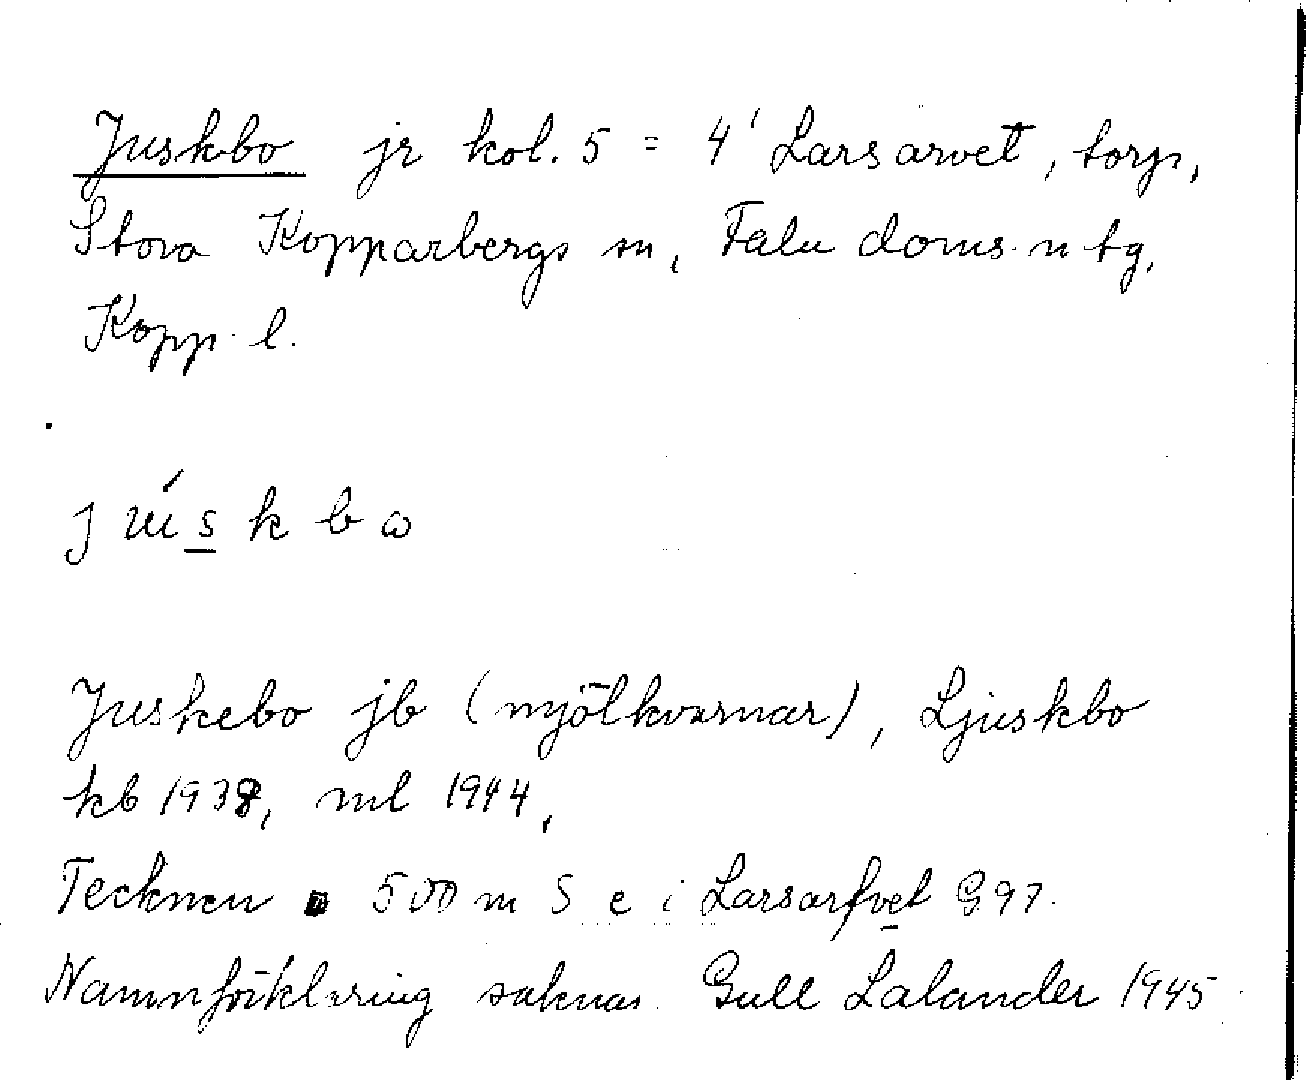 Juskbo jr kol. 5 = 4' Larsarvet, torp,
Stora Kopparbergs sn, Falu doms. n tg,
Kopp. l.
j úskbω
Juskebo jb (mjölkvarnar), Ljuskbo
kb 1938, ml 1944,
Tecknen ▪ 500 m S e i Larsarfvet G97.
Namnförklaring saknas. Gull Lalander 1945.